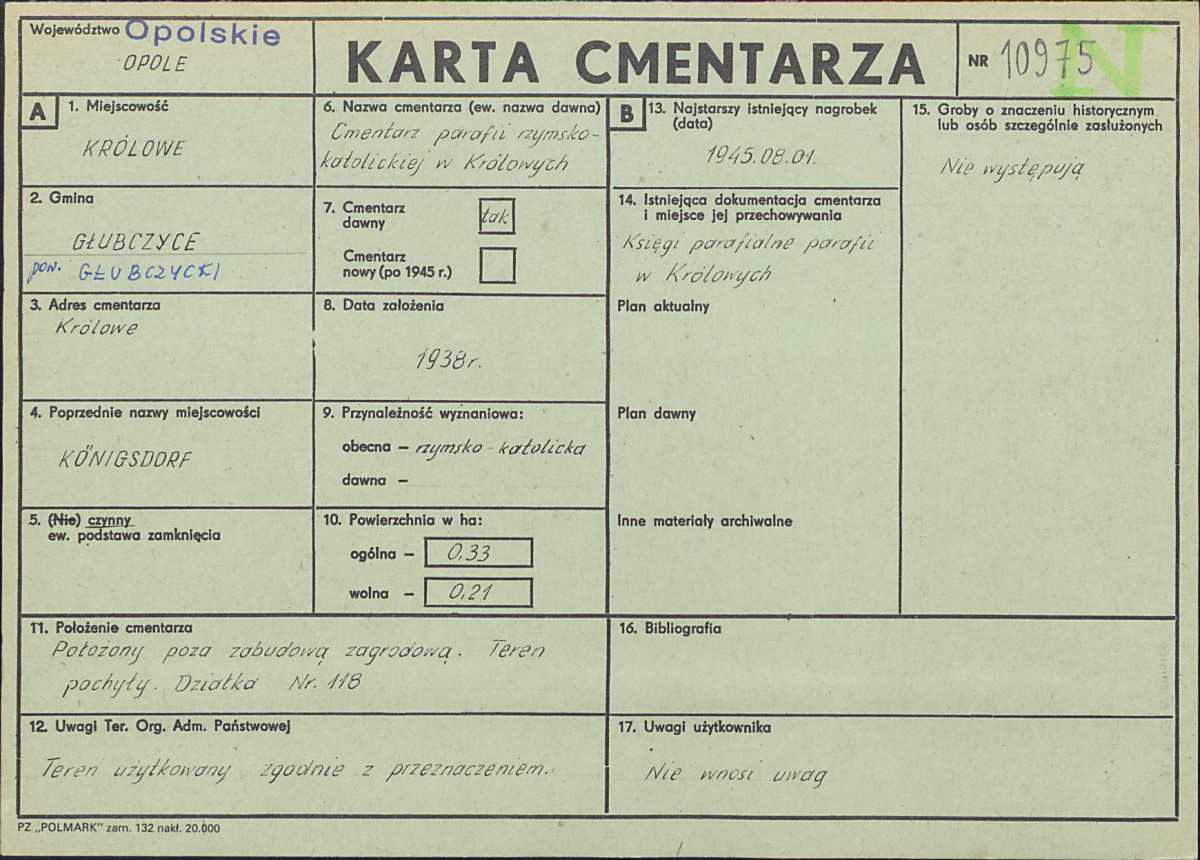 Województwo Opolskie
OPOLE
KARTA CMENTARZA
NR 10975
N
A
1. Miejscowość
KRÓLOWE
2. Gmina
GŁUBCZYCE
pow. GŁUBCZYCKI
3. Adres cmentarza
Królowe
4. Poprzednie nazwy miejscowości
KÖNIGSDORF
5. (Nie) czynny
ew. podstawa zamknięcia
6. Nazwa cmentarza (ew. nazwa dawna)
Cmentarz parafii rzymsko-
katolickiej w Królowych
7. Cmentarz
dawny
tak
Cmentarz
nowy (po 1945 r.)
8. Data założenia
1938r.
9. Przynależność wyznaniowa:
obecna – rzymsko-katolicka
dawna –
10. Powierzchnia w ha:
ogólna – 0,33
wolna – 0,21
B
13. Najstarszy istniejący nagrobek
(data)
1945.08.01.
14. Istniejąca dokumentacja cmentarza
i miejsce jej przechowywania
Księgi parafialne parafii
w Królowych
Plan aktualny
Plan dawny
Inne materiały archiwalne
15. Groby o znaczeniu historycznym
lub osób szczególnie zasłużonych
Nie występują
11. Położenie cmentarza
Położony poza zabudową zagrodową. Teren
pochyły. Działka Nr. 118
12. Uwagi Ter. Org. Adm. Państwowej
Teren użytkowany zgodnie z przeznaczeniem.
16. Bibliografia
17. Uwagi użytkownika
Nie wnosi uwag
PZ „POLMARK" zam. 132 nakł. 20.000